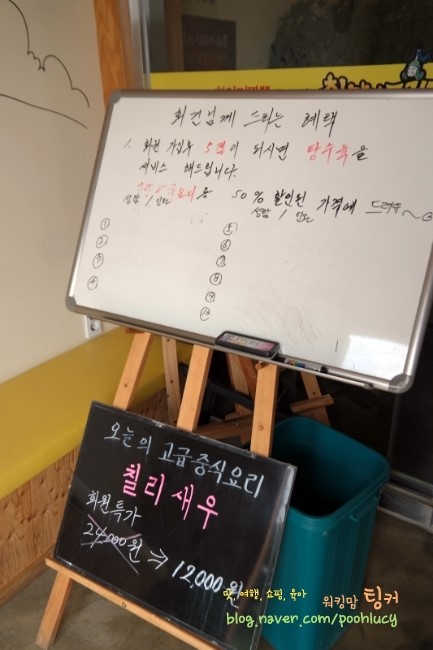 회원님께 드리는 혜택
1. 회원 가입후 5명이 되시면 탕수육을
서비스 해드립니다.
50% 할인된 가격에 드려요~
성함 / 인원 성함 / 인원
① ⑤
② ⑥
③ ⑦
④ ⑧
⑨
⑩
오늘의 고급중식요리
칠리새우
회원특가
24,000원 ⇒ 12,000원
맛, 여행, 쇼핑, 육아 워킹맘 팅커
blog.naver.com/poohlucy